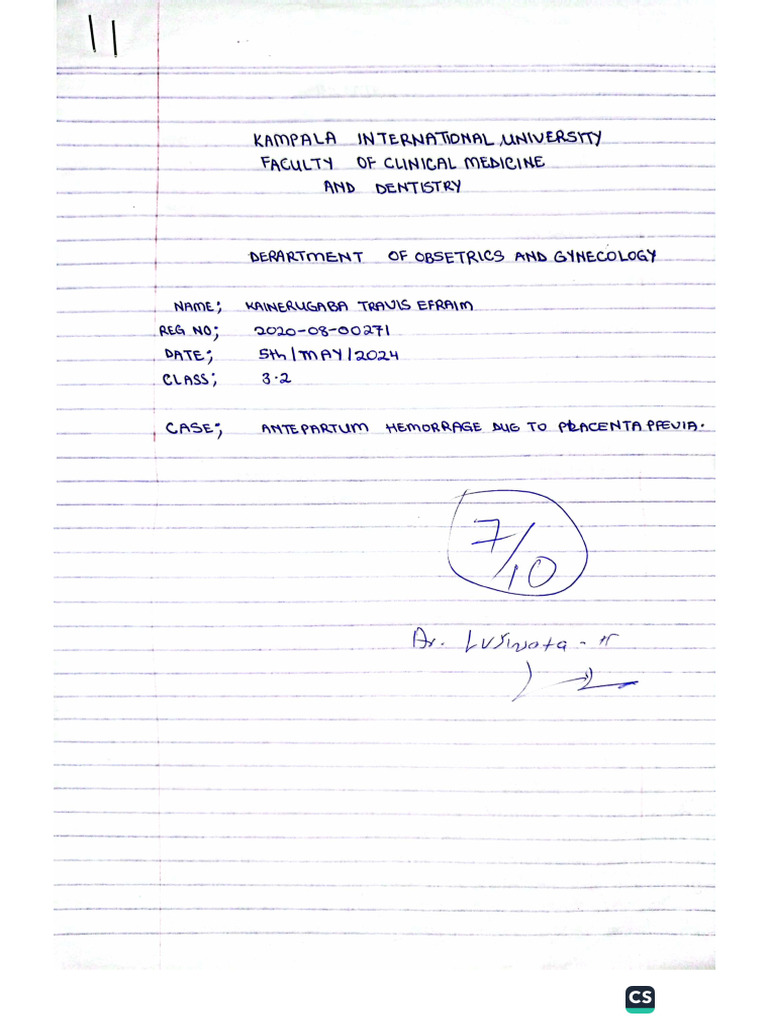 11
KAMPALA INTERNATIONAL UNIVERSITY
FACULTY OF CLINICAL MEDICINE
AND DENTISTRY
DERARTMENT OF OBSETRICS AND GYNECOLOGY
NAME; KAINERUGABA TRAVIS EFRAIM
REG NO; 2020-08-00271
DATE; 5th/MAY/2024
CLASS; 3.2
CASE; ANTEPARTUM HEMORRAGE DUE TO PLACENTA PPEVIA.
7/10
Dr.
CS